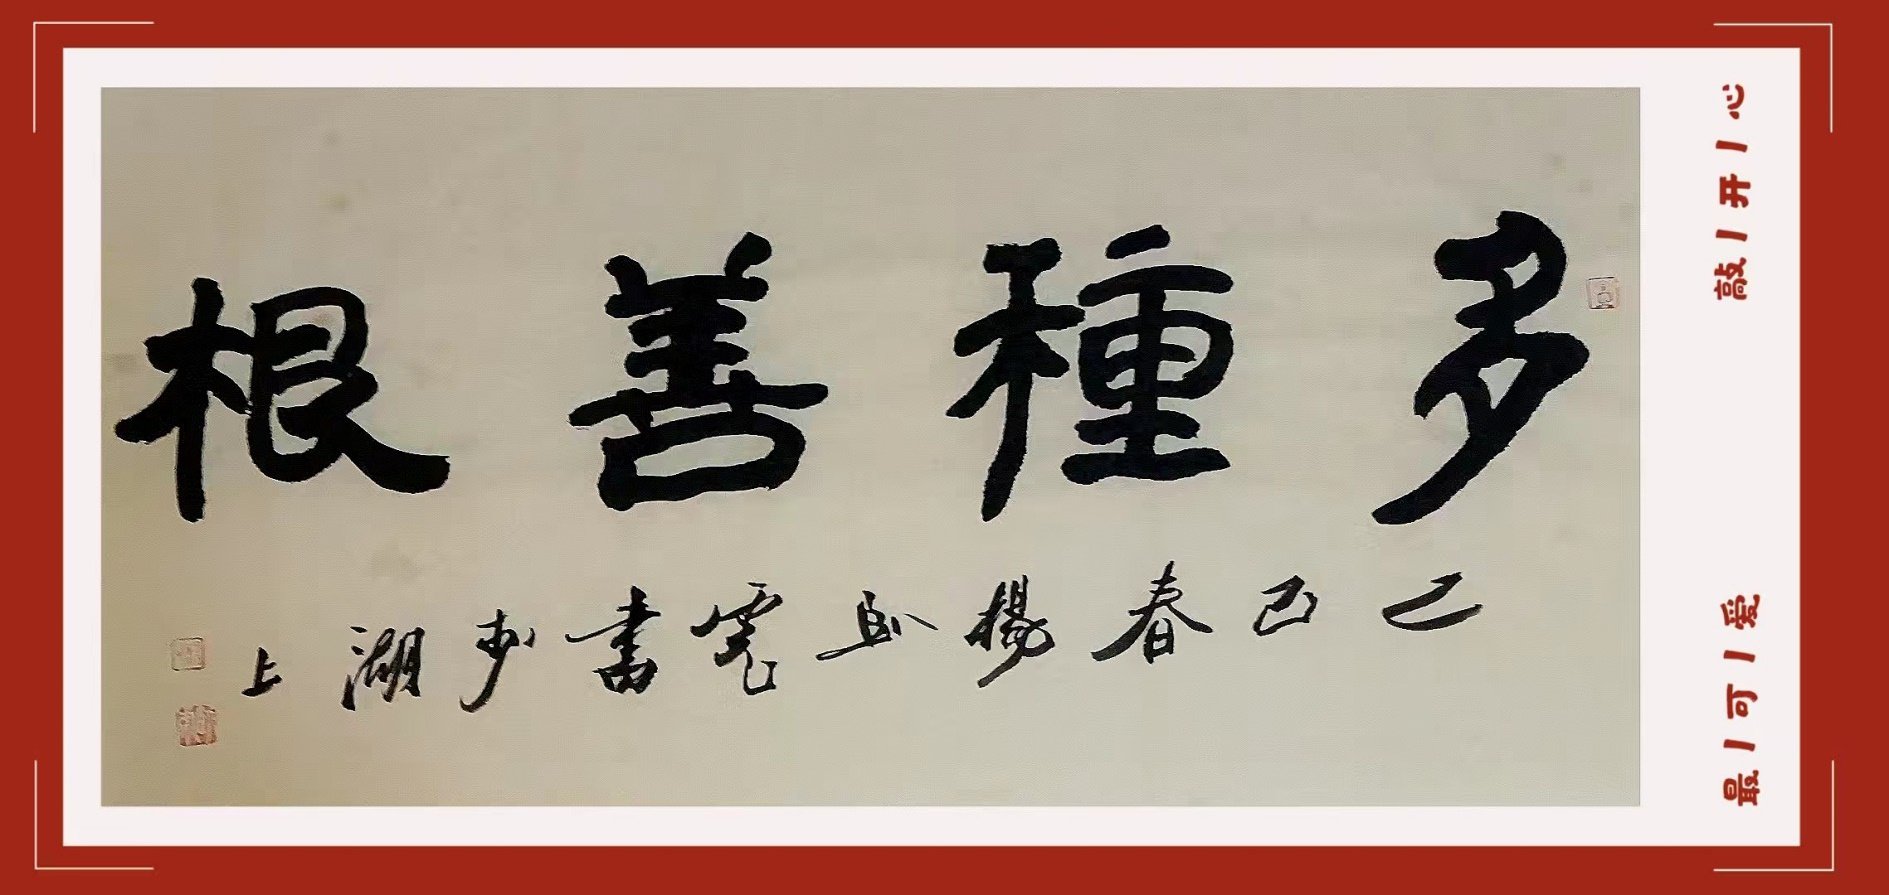 多種善根
乙巳春楊臥書於湖上
最丨可丨爱
敲丨开丨心